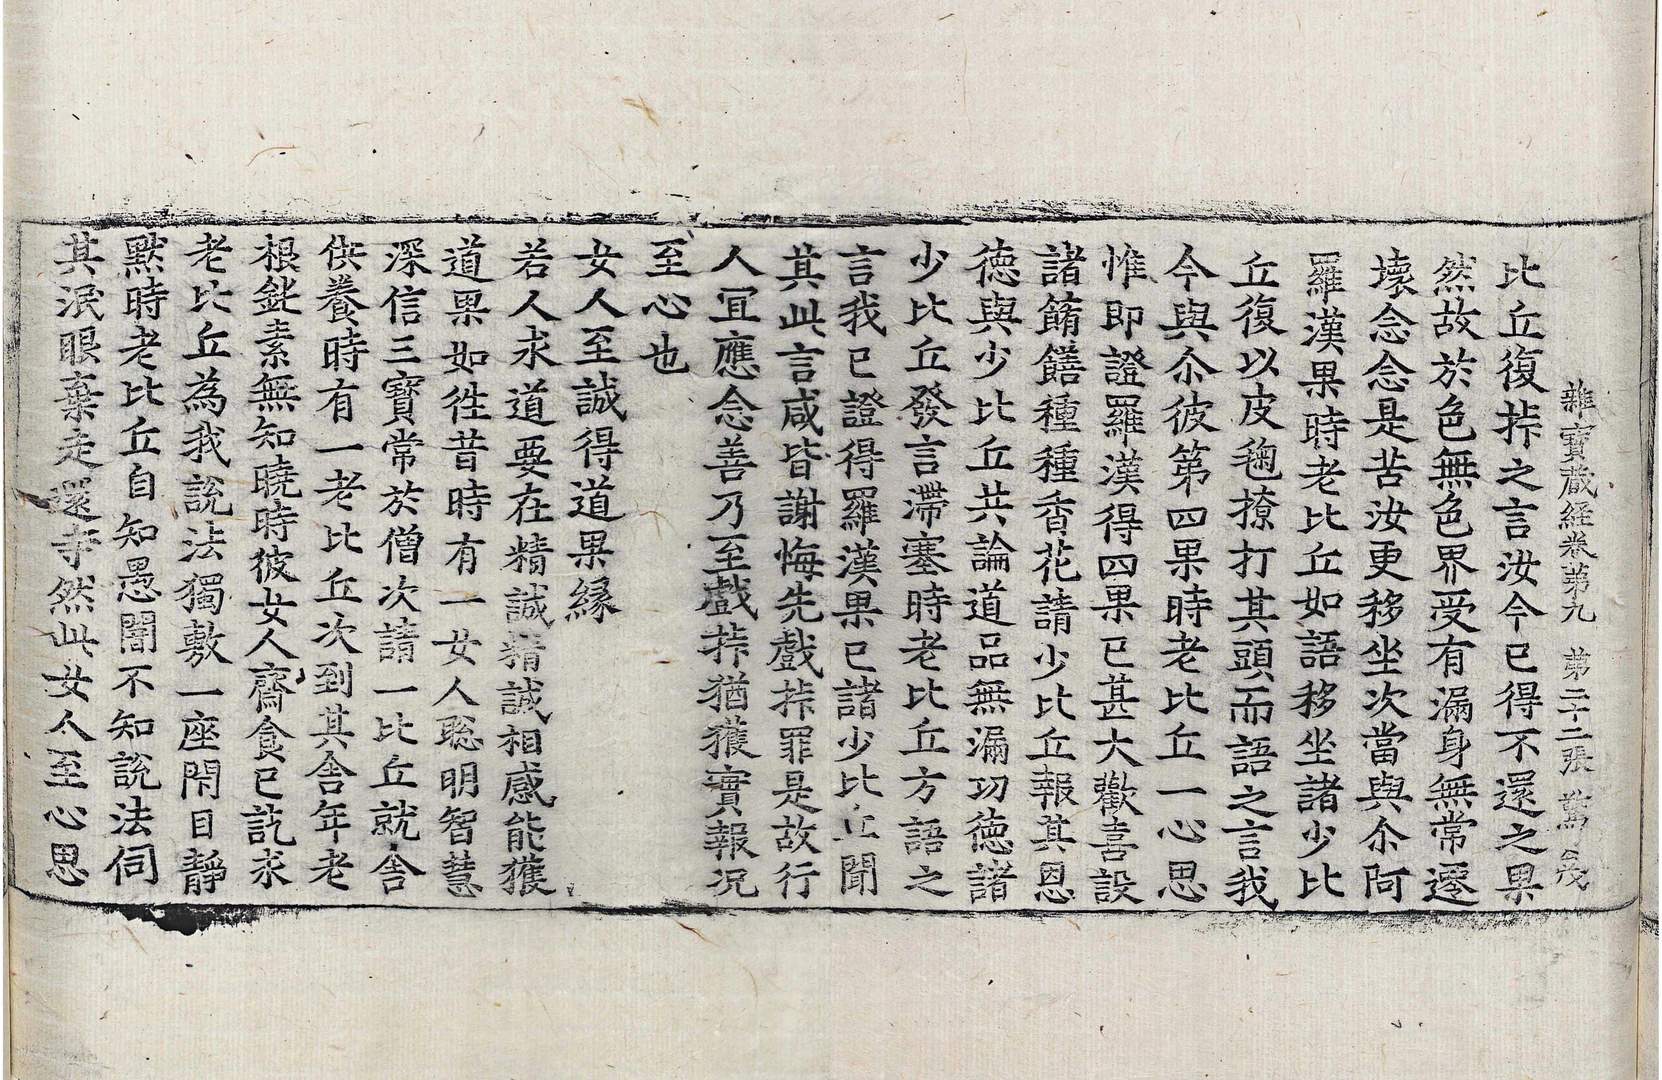 雜寶藏經卷第九　第二十二張
比丘復捽之言汝今已得不還之果
然故於色無色界受有漏身無常遷
壞念念是苦汝更移坐次當與尒阿
羅漢果時老比丘如語移坐諸少比
丘復以皮毱撩打其頭而語之言我
今與尒彼第四果時老比丘一心思
惟即證羅漢得四果已甚大歡喜設
諸餚饍種種香花請少比丘報其恩
德與少比丘共論道品無漏功德諸
少比丘發言滯塞時老比丘方語之
言我已證得羅漢果已諸少比丘聞
其此言咸皆謝悔先戲捽罪是故行
人冝應念善乃至戲捽猶獲實報况
至心也
女人至誠得道果緣
若人求道要在精誠精誠相感能獲
道果如徃昔時有一女人聡明智慧
深信三寶常於僧次請一比丘就舍
供養時有一老比丘次到其舍年老
根鈍素無知曉時彼女人齋食已訖求
老比丘為我說法獨敷一座閇目靜
默時老比丘自知愚闇不知說法伺
其泯眼棄走還寺然此女人至心思